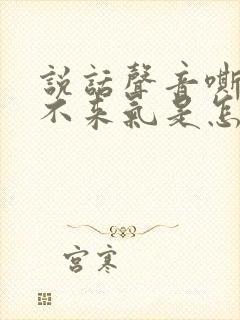 説話聲音嘶
不来氣是怎
宮寒